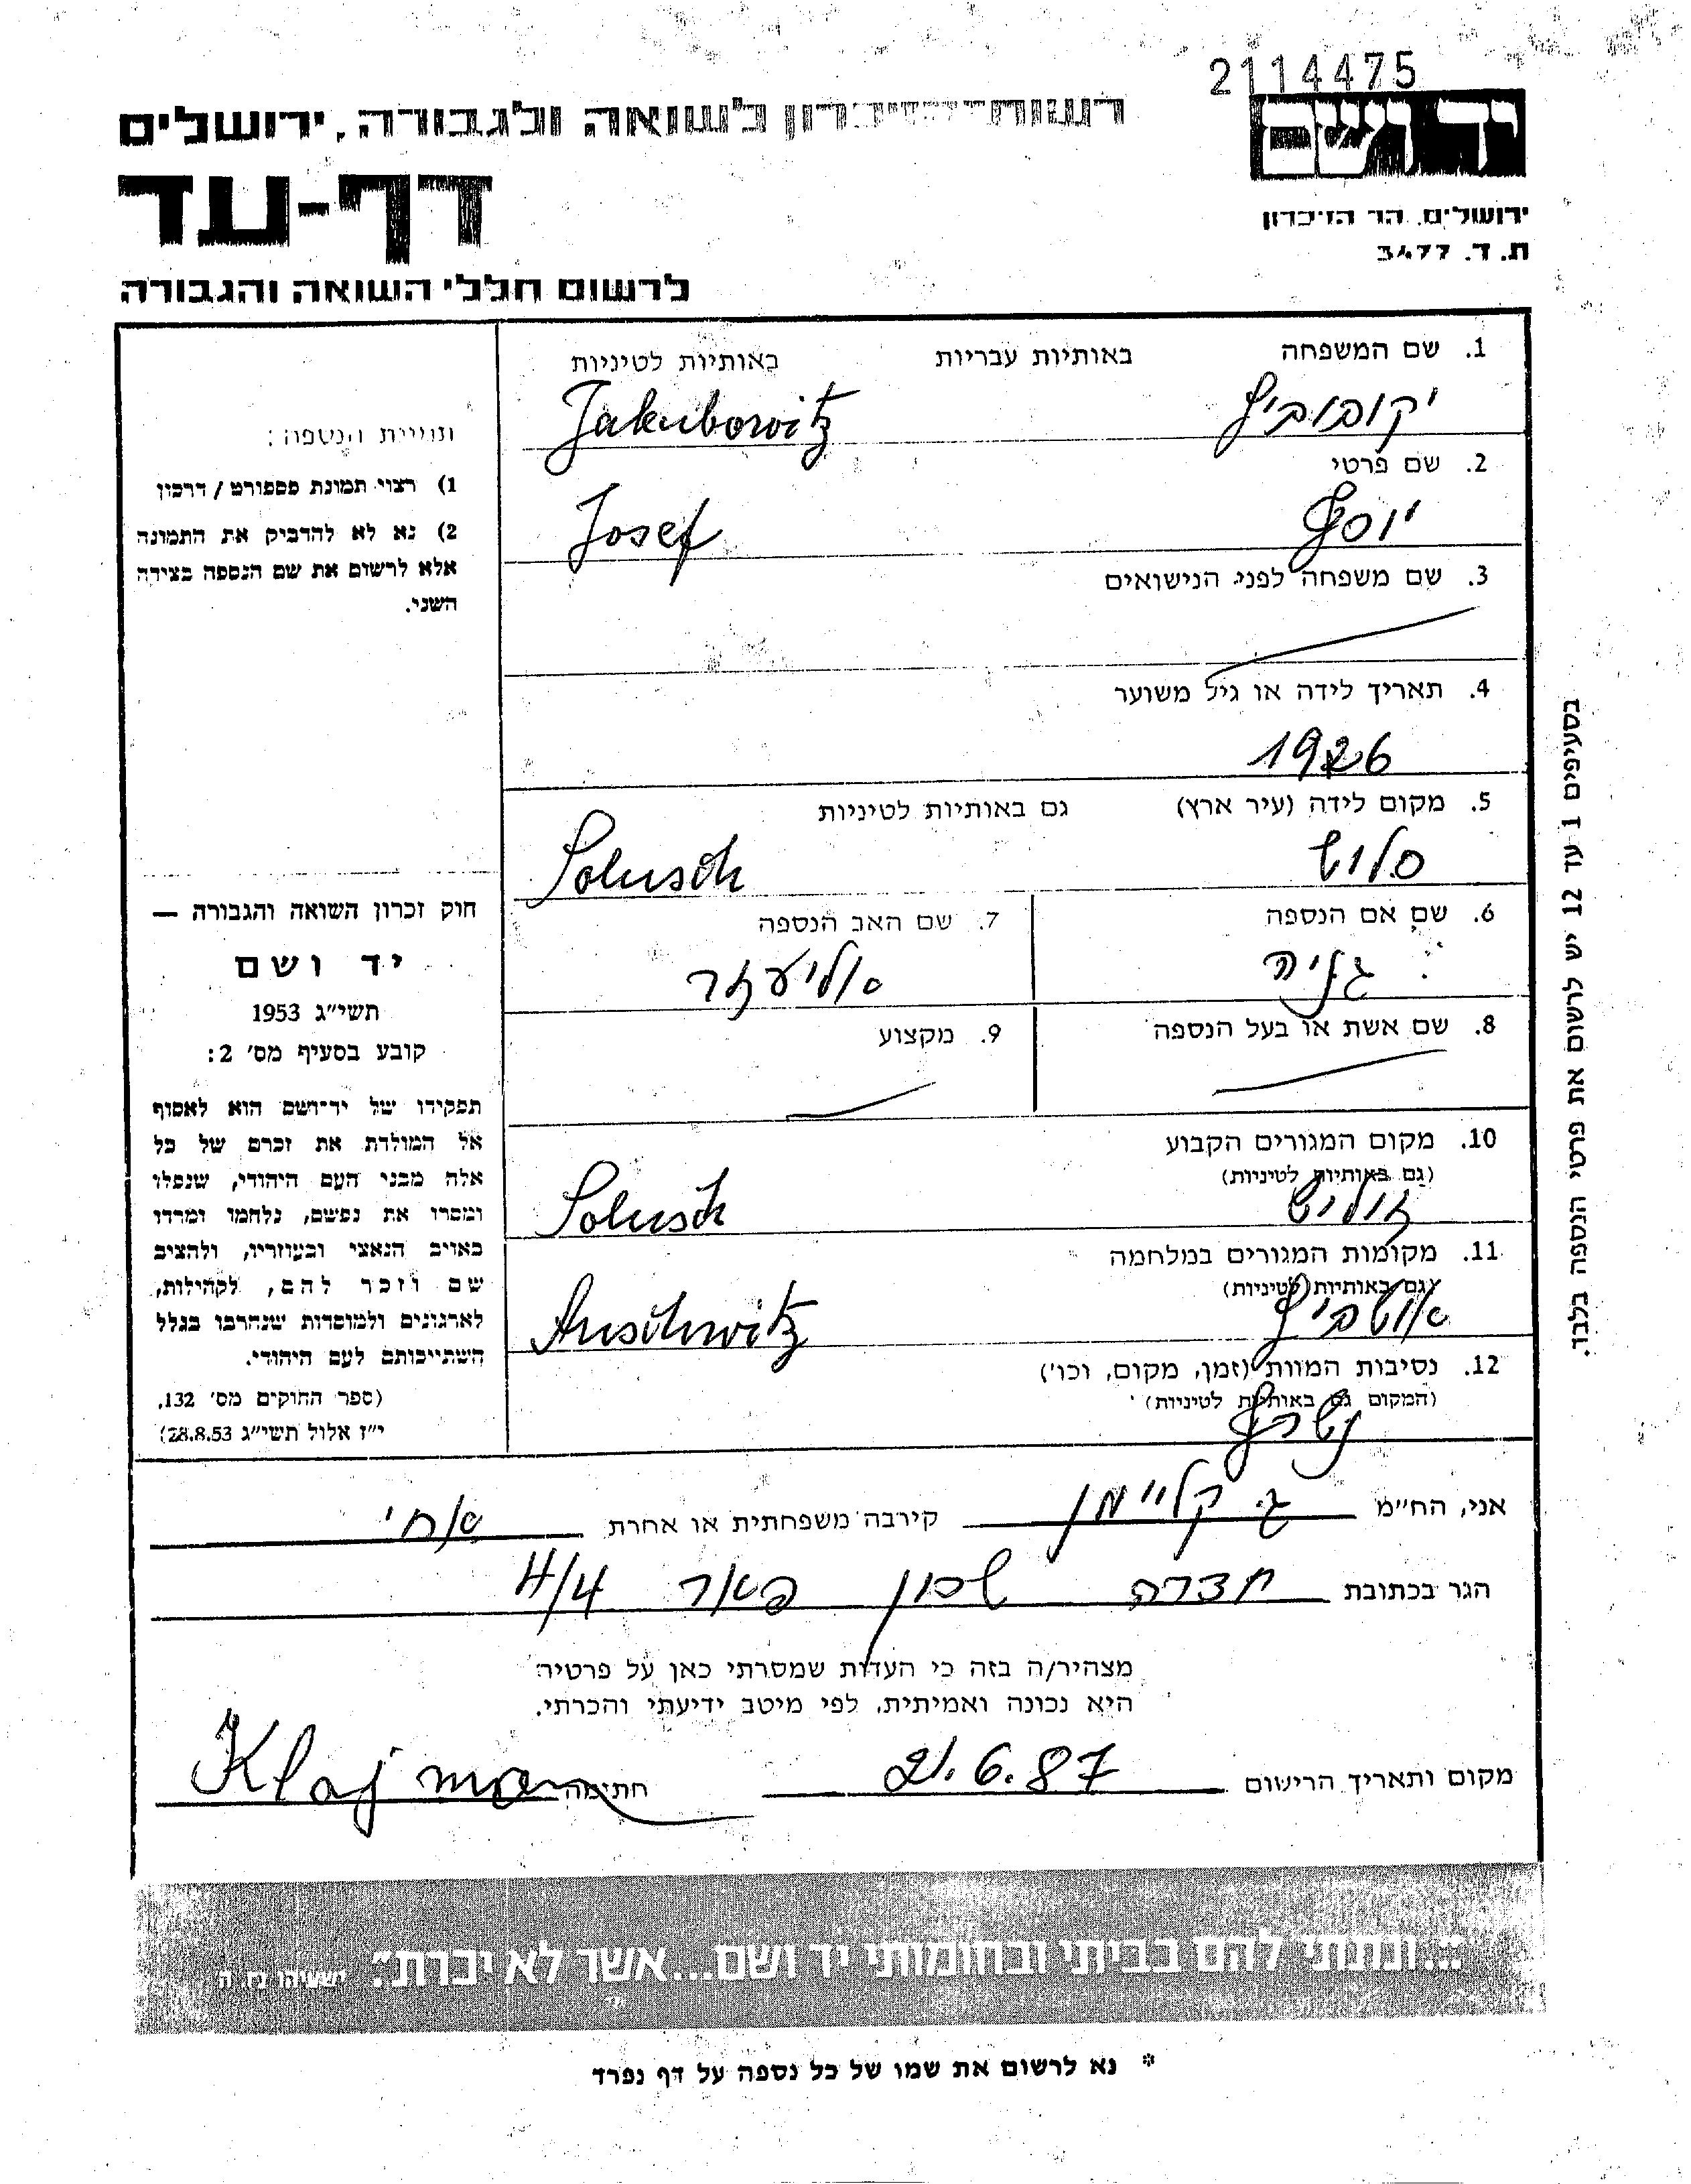 2114475
רשות הזיכרון לשואה ולגבורה, ירושלים
יד ושם
דף-עד
ירושלים, הר הזיכרון
ת.ד. 3477
לרשום חללי השואה והגבורה
1. שם המשפחה באותיות עבריות באותיות לטיניות
יקובוביץ Jakubowitz
2. שם פרטי
יוסף Josef
3. שם משפחה לפני הנישואים
4. תאריך לידה או גיל משוער
1926
5. מקום לידה (עיר ארץ) גם באותיות לטיניות
סלוש Solusch
6. שם אם הנספה 7. שם האב הנספה
גניה אליעזר
8. שם אשת או בעל הנספה 9. מקצוע
10. מקום המגורים הקבוע
(גם באותיות לטיניות)
Solusch
11. מקומות המגורים במלחמה
(גם באותיות לטיניות)
אושביץ Auschwitz
12. נסיבות המוות (זמן, מקום, וכו')
(המקום גם באותיות לטיניות)
נשרף
תמונת הנספה:
1) רצוי תמונת פספורט / דרכון
2) נא לא להדביק את התמונה
אלא לרשום את שם הנספה בצידה
השני.
חוק זכרון השואה והגבורה —
יד ושם
תשי"ג 1953
קובע בסעיף מס' 2:
תפקידו של יד-ושם הוא לאסוף
אל המולדת את זכרם של כל
אלה מבני העם היהודי, שנפלו
ומסרו את נפשם, נלחמו ומרדו
באויב הנאצי ובעוזריו, ולהציב
שם וזכר להם, לקהילות,
לארגונים ולמוסדות שנחרבו בגלל
השתייכותם לעם היהודי.
(ספר החוקים מס' 132,
י"ז אלול תשי"ג 28.8.53)
בסעיפים 1 עד 12 יש לרשום את פרטי הנספה בלבד.
אני, הח"מ ג קליימן קירבה משפחתית או אחרת אחי
הגר בכתובת חדרה שכון פאר 4/4
מצהיר/ה בזה כי העדות שמסרתי כאן על פרטיה
היא נכונה ואמיתית, לפי מיטב ידיעתי והכרתי.
מקום ותאריך הרישום 21.6.87 חתימה Klajman
"...ונתתי להם בביתי ובחומותי יד ושם...אשר לא יכרת". ישעיהו נו ה
* נא לרשום את שמו של כל נספה על דף נפרד